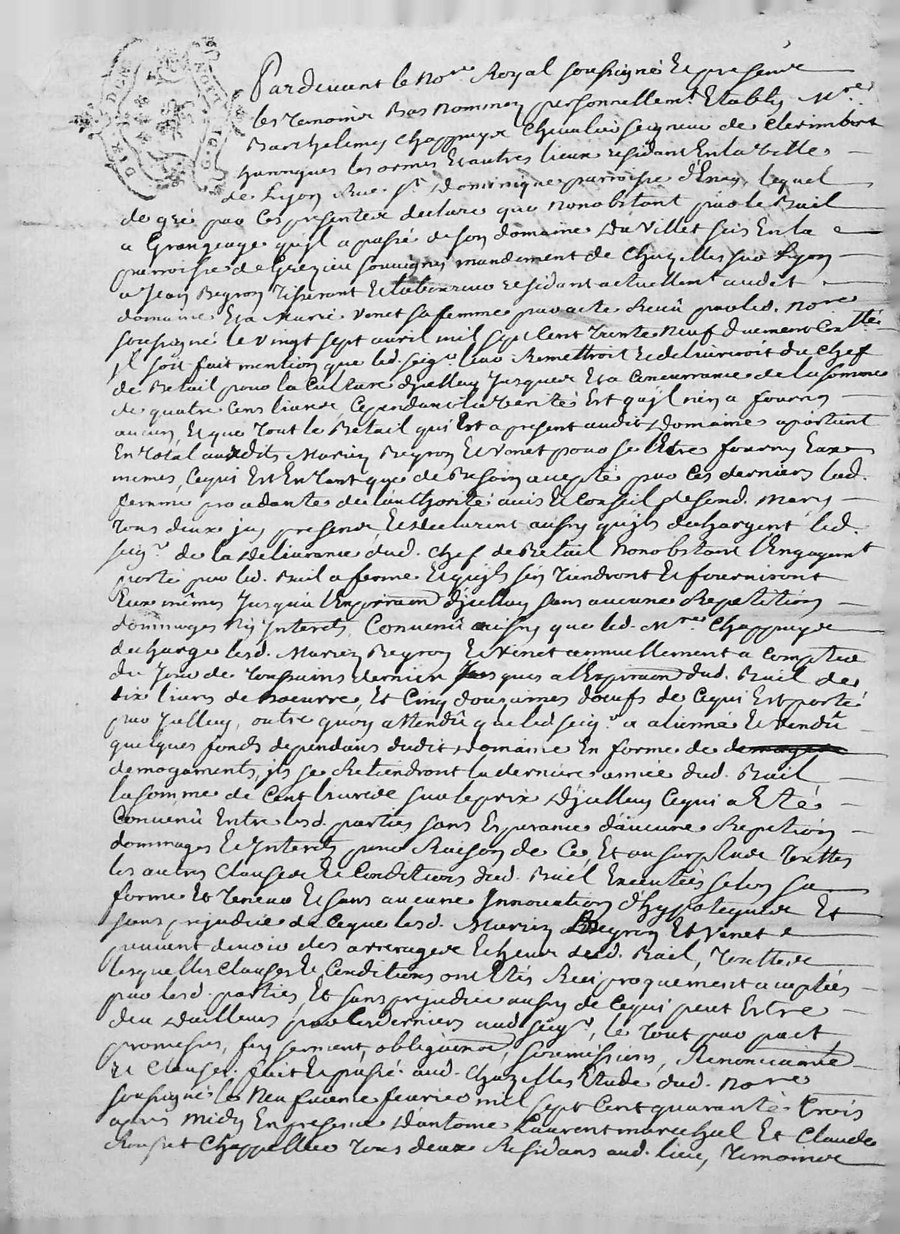 Pardevant le No.re Royal soussigné Et presents
les temoins Bas nommez personnellem.t Etablis M.re
Barthelemy Chappuys Chevalier seigneur de Clerimbert
les ormes Et autres lieux residant En la Ville
de Lyon Rue S.t Dominique parroisse d'Enay, lequel
de gré par Ces presentes declare que nonobstant par le Bail
a Grangeage qu'il a passé de son domaine Du Villet scis En la
parroisse de Grezieu souvigny mandement de Chazelles sur Lyon
a Jean Beyron Tisserant Et laboureur residant actuellem.t audit
domaine Et a Marie Venet sa femme par acte Reçû par led. No.re
soussigné le vingt sept avril mil sept Cent trente Neuf duement Con.llé
Il soit fait mention que led. seig.r leur Remettroit Et delivreroit du Chef
de Betail pour la Culture d'jcelluy Jusques Et a Concurrance de la somme
de quatre Cens livres, Cependant la verité Est qu'jl n'en a fourny
aucun, Et que tout le Betail qui Est a present audit Domaine apartient
En total auxdits Mariez Beyron Et Venet pour se l'Etre fourny Eux
mêmes, Cequi Est En tant que de Besoin accepté par Ces derniers lad.
femme procedante de l'authorité avis Et Conseil de sond. Mary
tous deux jcy presents, Et declarent aussy qu'jls dechargent led.
seig.r de la delivrance dud. Chef de Betail Nonobstant l'Engagem.t
porté par led. Bail a ferme Et qu'jls s'en tiendront Et fourniront
Eux mêmes Jusqu'a l'Expiraon d'jcelluy sans aucune Repetition
dommages Ny Interets, Convenû aussy que led. M.re Chappuys
decharge lesd. Mariez Beyron Et Venet annuellement a Compter
du Jour de Toussaints dernier Jusques a l'Expiraon dud. Bail de
dix livres de Boeurre, Et Cinq douzaines d'oeufs de Cequi Est porté
par Jcelluy, outre quoy attendû que led. seig.r a aliené Et Vendû
quelques fonds dependans dudit Domaine En forme de
demogements, jls se Retiendront la derniere année dud. Bail
la somme de Cent livres sur le prix D'jcelluy Cequi a Eté
Convenû Entre lesd. parties sans Esperance d'aucune Repetition
dommages Et Interets pour Raison de Ce, Et au surplus toutes
les autres Clauses Et Conditions dud. Bail Executées selon sa
forme Et teneur Et sans aucune Innovation d'hypoteque Et
sans prejudice de Ceque lesd. Mariez Beyron Et Venet
peuvent devoir des arrerages Echeus dud. Bail, toutes
lesquelles Clauses Et Conditions ont Etés Reciproquement acceptées
par lesd. parties, Et sans prejudice aussy de Cequi peut Estre
deu d'ailleurs par les derniers aud. seig.r, le tout par pact
promesses, foy serment, obligeance, soumissions, Renonciaons
Et Clauses. fait Et passé aud. Chazelles Etude dud. No.re
soussigné le Neufvieme fevrier mil sept Cent quarante trois
apres midy En presence D'antoine Laurent marechal Et Claude
Chappellier tous deux Residans aud. lieu, temoins